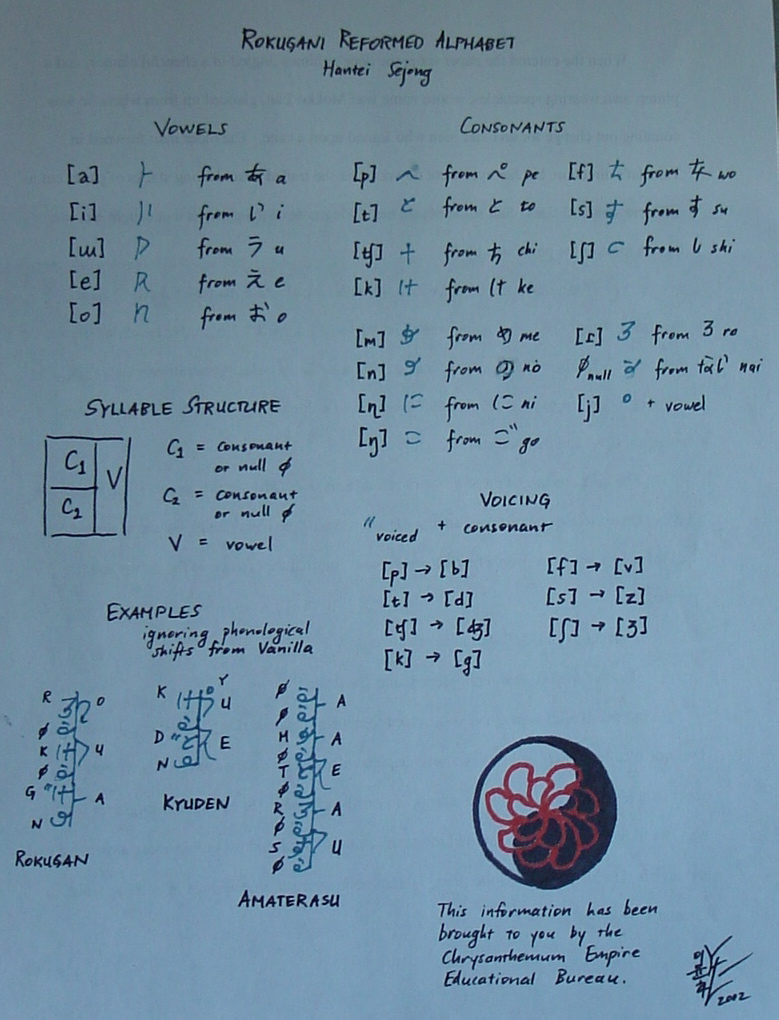 ROKUGANI REFORMED ALPHABET
Hantei Sejong
VOWELS
[a] ㅏ from あ a
[i] from い i
[ɯ] from う u
[e] from え e
[o] from お o
CONSONANTS
[p] へ from ぺ pe
[t] と from と to
[tʃ] from ち chi
[k] け from け ke
[f] を from を wo
[s] す from す su
[ʃ] from し shi
[m] from め me
[n] from の no
[ɲ] に from に ni
[ŋ] こ from ご go
[ɾ] ろ from ろ ro
ø null from ない nai
[j] ° + vowel
SYLLABLE STRUCTURE
C1 C2 V
C1 = consonant
or null ø
C2 = consonant
or null ø
V = vowel
VOICING
〃 voiced + consonant
[p] → [b]
[t] → [d]
[tʃ] → [dʒ]
[k] → [g]
[f] → [v]
[s] → [z]
[ʃ] → [ʒ]
EXAMPLES
ignoring phonological
shifts from Vanilla
R O
ø
K U
ø
G A
N
ROKUGAN
K Y U
D E
N
KYUDEN
ø A
ø
M A
ø
T E
ø
R A
ø
S U
ø
AMATERASU
This information has been
brought to you by the
Chrysanthemum Empire
Educational Bureau.
2002